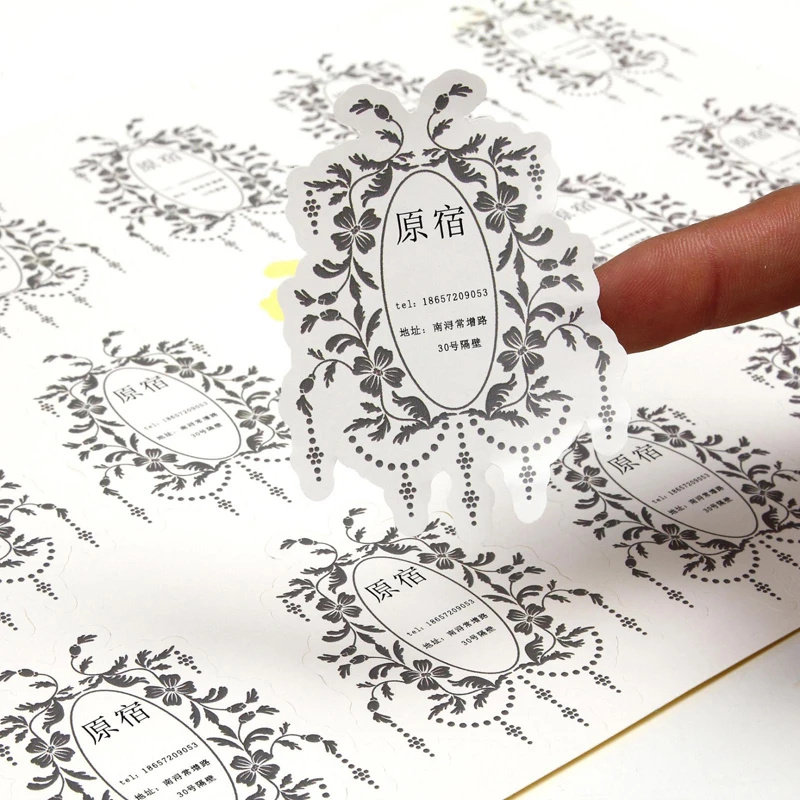 原宿
tel: 18657209053
地址: 南浔常增路
30号隔壁
原宿
原宿
原宿
tel: 18657209053
地址: 南浔常增路
30号隔壁
原宿
tel: 18657209053
地址: 南浔常增路
30号隔壁
原宿
tel: 18657209053
地址: 南浔常增路
30号隔壁
原宿
tel: 18657209053
地址: 南浔常增路
30号隔壁